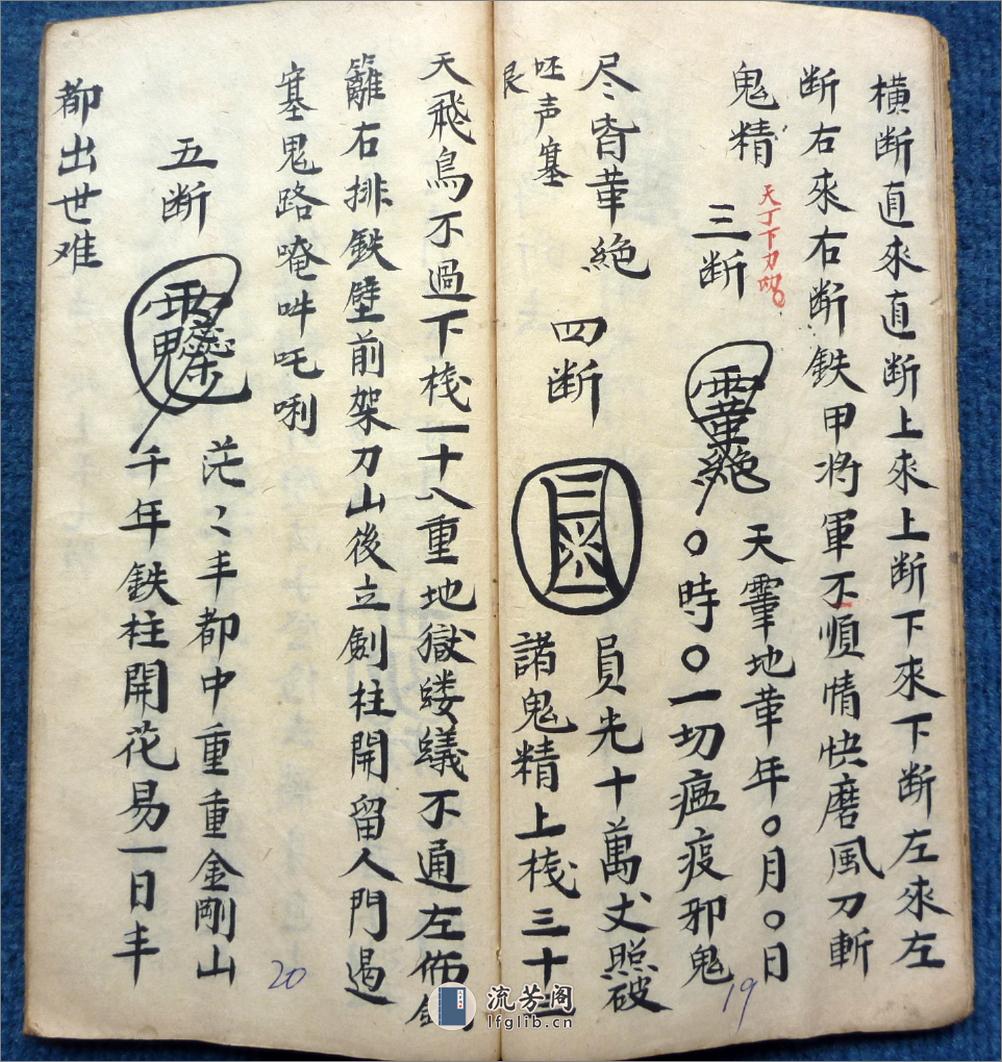 橫断直來直断上來上断下來下断左來左
断右來右断鉄甲将軍不順情快磨風刀斬
鬼精 天丁下力
三断
天霻地華年〇月〇日
〇時〇一切瘟疫邪鬼
尽皆華絶 四断
呸声塞
員光十萬丈照破
諸鬼精上栈三十三
天飛鳥不過下栈一十八重地獄蝼蟻不通左佈
籬右排鉄壁前架刀山後立劍柱開留人門遏
塞鬼路唵吽吒唎
五断
茫〻丰都中重重金剛山
千年鉄柱開花易一日丰
都出世难
19
20
流芳阁
lfglib.cn